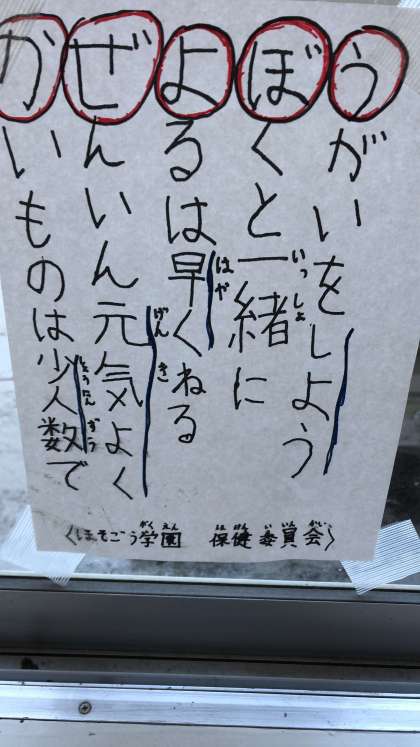 うがいをしよう
ぼくと一緒に
よるは早くねる
ぜんいん元気よく
かいものは少人数で
〈ほそごう学園 保健委員会〉